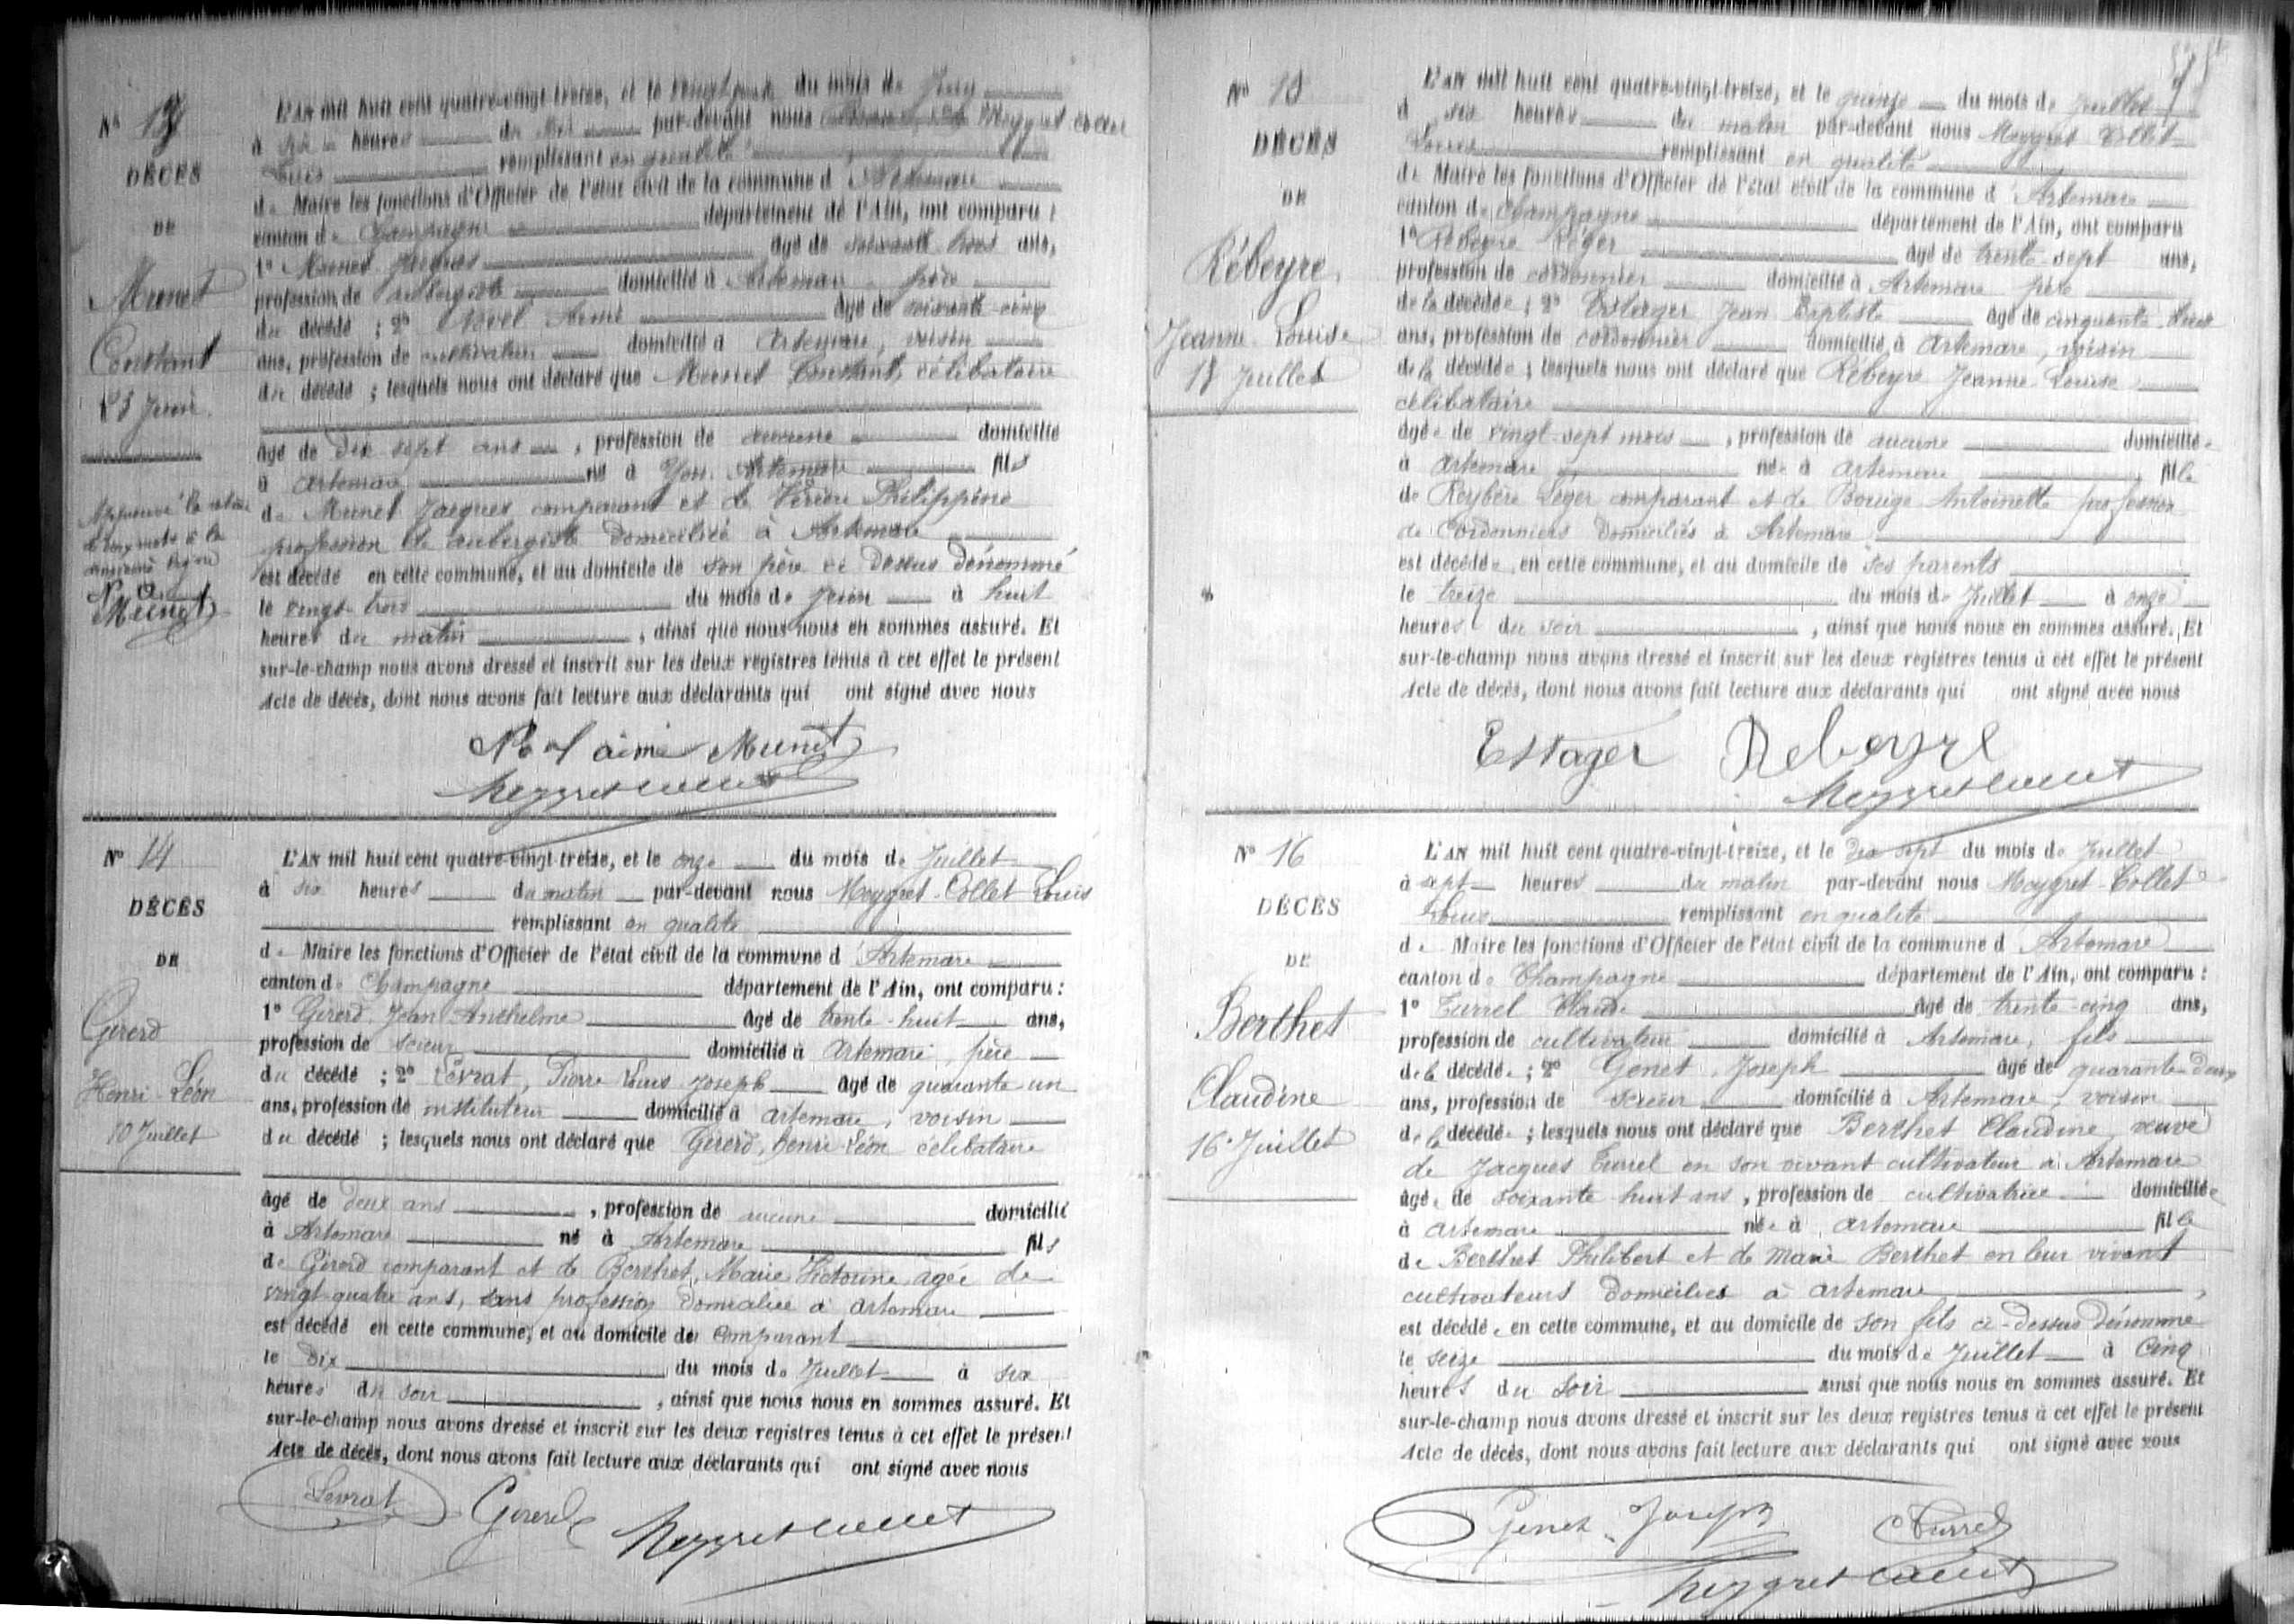 Nº 13
DÉCÈS
DE
Munet
Constant
23 Juin
Approuvé la rature
de cinq mots à la
ligne
N. A.
Munet
L'AN mil huit cent quatre-vingt-treize, et le du mois de Juin
à six heures du par-devant nous Meygret Collet
Louis remplissant en qualité
de Maire les fonctions d'Officier de l'état civil de la commune d'Artemare
canton de Champagne département de l'Ain, ont comparu :
1º Munet Jacques âgé de soixante trois ans,
profession de aubergiste domicilié à Artemare, père
du décédé ; 2º Noël Aimé âgé de soixante-cinq
ans, profession de cultivateur domicilié à Artemare, voisin
du décédé ; lesquels nous ont déclaré que Munet Constant, célibataire
âgé de dix sept ans, profession de aucune domicilié
à Artemare né à Yon. Artemare fils
de Munet Jacques comparant et de Philippine
profession de aubergiste domicilié à Artemare
est décédé en cette commune, et au domicile de son père ci dessus dénommé
le vingt-trois du mois de Juin à huit
heures du matin, ainsi que nous nous en sommes assuré. Et
sur-le-champ nous avons dressé et inscrit sur les deux registres tenus à cet effet le présent
Acte de décès, dont nous avons fait lecture aux déclarants qui ont signé avec nous
Noël aimé Munet
Meygretcollet
Nº 14
DÉCÈS
DE
Gererd
Henri-Léon
10 Juillet
L'AN mil huit cent quatre-vingt-treize, et le onze du mois de Juillet
à six heures du matin par-devant nous Meygret-Collet Louis
remplissant en qualité
de Maire les fonctions d'Officier de l'état civil de la commune d'Artemare
canton de Champagne département de l'Ain, ont comparu :
1º Gererd Jean Anthelme âgé de trente-huit ans,
profession de scieur domicilié à Artemare, père
du décédé ; 2º Levrat, Pierre Louis Joseph âgé de quarante un
ans, profession de instituteur domicilié à artemare, voisin
du décédé ; lesquels nous ont déclaré que Gererd, henri-Léon célibataire
âgé de deux ans, profession de aucune domicilié
à Artemare né à Artemare fils
de Gererd comparant et de Berthet, Marie Victorine agée de
vingt-quatre ans, sans profession domiciliée à artemare
est décédé en cette commune, et au domicile de comparant
le dix du mois de Juillet à six
heures du soir, ainsi que nous nous en sommes assuré. Et
sur-le-champ nous avons dressé et inscrit sur les deux registres tenus à cet effet le présent
Acte de décès, dont nous avons fait lecture aux déclarants qui ont signé avec nous
Levrat Gererd Meygretcollet
Nº 15
DÉCÈS
DE
Rébeyre
Jeanne Louise
13 Juillet
L'AN mil huit cent quatre-vingt-treize, et le quinze du mois de Juillet
à six heures du matin par-devant nous Meygret Collet
Louis remplissant en qualité
de Maire les fonctions d'Officier de l'état civil de la commune d'Artemare
canton de Champagne département de l'Ain, ont comparu
1º Rebeyre Léger âgé de trente-sept ans,
profession de cordonnier domicilié à Artemare père
de la décédée ; 2º Estager Jean Baptiste âgé de cinquante
ans, profession de cordonnier domicilié à Artemare, voisin
de la décédée ; lesquels nous ont déclaré que Rébeyre Jeanne-Louise
célibataire
âgée de vingt-sept mois, profession de aucune domiciliée
à Artemare née à artemare fille
de Reybère Léger comparant et de Bouige Antoinette profession
de Cordonniers domiciliés à Artemare
est décédée en cette commune, et au domicile de ses parents
le treize du mois de Juillet à onze
heures du soir, ainsi que nous nous en sommes assuré. Et
sur-le-champ nous avons dressé et inscrit sur les deux registres tenus à cet effet le présent
Acte de décès, dont nous avons fait lecture aux déclarants qui ont signé avec nous
Estager Rebeyre
Meygretcollet
Nº 16
DÉCÈS
DE
Berthet
Claudine
16 Juillet
L'AN mil huit cent quatre-vingt-treize, et le dix sept du mois de Juillet
à sept heures du matin par-devant nous Meygret-Collet
Louis remplissant en qualité
de Maire les fonctions d'Officier de l'état civil de la commune d'Artemare
canton de Champagne département de l'Ain, ont comparu :
1º Turrel Claude âgé de trente-cinq ans,
profession de cultivateur domicilié à Artemare, fils
de la décédée ; 2º Genet, Joseph âgé de quarante-deux
ans, profession de scieur domicilié à Artemare, voisin
de la décédée ; lesquels nous ont déclaré que Berthet Claudine, veuve
de Jacques Turrel en son vivant cultivateur à Artemare
âgée de soixante huit ans, profession de cultivatrice domiciliée
à artemare née à artemare fille
de Berthet Philibert et de Marie Berthet en leur vivant
cultivateurs domiciliés à artemare
est décédée en cette commune, et au domicile de son fils ci-dessus dénommé
le seize du mois de Juillet à cinq
heures du soir ainsi que nous nous en sommes assuré. Et
sur-le-champ nous avons dressé et inscrit sur les deux registres tenus à cet effet le présent
Acte de décès, dont nous avons fait lecture aux déclarants qui ont signé avec nous
Genet Joseph C Turrel
Meygretcollet